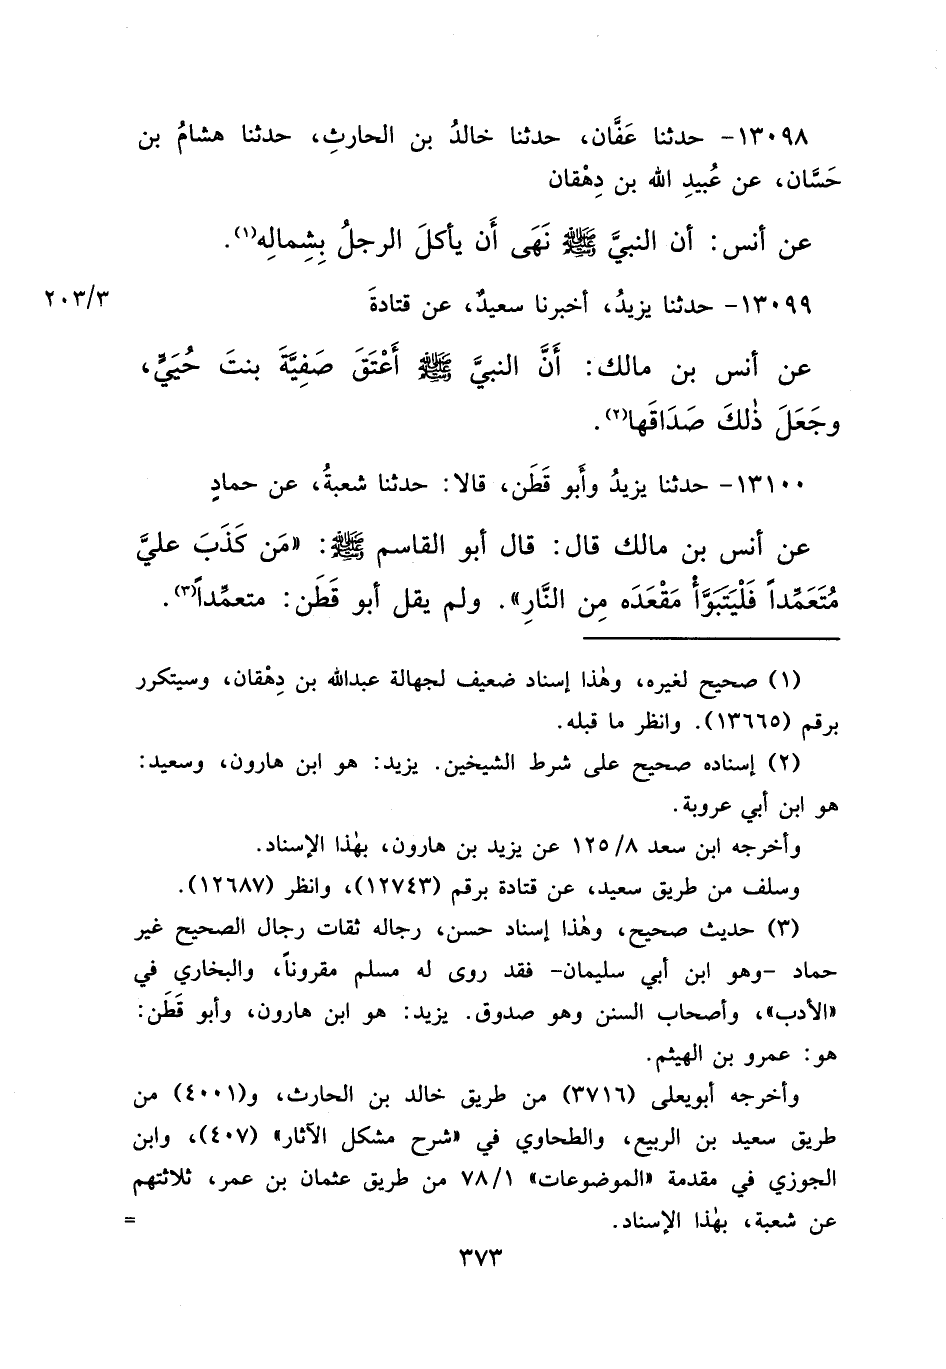 ١٣٠٩٨- حدثنا عَفَّان، حدثنا خالدُ بن الحارثِ، حدثنا هشامُ بن
حَسَّان، عن عُبيدِ الله بن دِهْقان
عن أنس: أن النبيَّ ﷺ نَهَى أَن يأكلَ الرجلُ بِشِمالِه(١).
١٣٠٩٩- حدثنا يزيدُ، أخبرنا سعيدٌ، عن قتادةَ
٢٠٣/٣
عن أنس بن مالك: أَنَّ النبيَّ ﷺ أَعْتَقَ صَفِيَّةَ بنتَ حُيَيٍّ،
وجَعَلَ ذٰلكَ صَدَاقَها(٢).
١٣١٠٠- حدثنا يزيدُ وأَبو قَطَن، قالا: حدثنا شعبةُ، عن حمادٍ
عن أنس بن مالك قال: قال أبو القاسم ﷺ: «مَن كَذَبَ عليَّ
مُتَعَمِّداً فَلْيَتَبَوَّأْ مَقْعَدَه مِن النَّارِ». ولم يقل أبو قَطَن: متعمِّداً(٣).
(١) صحيح لغيره، وهٰذا إسناد ضعيف لجهالة عبدالله بن دِهْقان، وسيتكرر
برقم (١٣٦٦٥). وانظر ما قبله.
(٢) إسناده صحيح على شرط الشيخين. يزيد: هو ابن هارون، وسعيد:
هو ابن أبي عروبة.
وأخرجه ابن سعد ١٢٥/٨ عن يزيد بن هارون، بهٰذا الإسناد.
وسلف من طريق سعيد، عن قتادة برقم (١٢٧٤٣)، وانظر (١٢٦٨٧).
(٣) حديث صحيح، وهٰذا إسناد حسن، رجاله ثقات رجال الصحيح غير
حماد -وهو ابن أبي سليمان- فقد روى له مسلم مقروناً، والبخاري في
«الأدب»، وأصحاب السنن وهو صدوق. يزيد: هو ابن هارون، وأبو قَطَن:
هو: عمرو بن الهيثم.
وأخرجه أبويعلى (٣٧١٦) من طريق خالد بن الحارث، و(٤٠٠١) من
طريق سعيد بن الربيع، والطحاوي في «شرح مشكل الآثار» (٤٠٧)، وابن
الجوزي في مقدمة «الموضوعات» ٧٨/١ من طريق عثمان بن عمر، ثلاثتهم
عن شعبة، بهٰذا الإسناد. =
٣٧٣